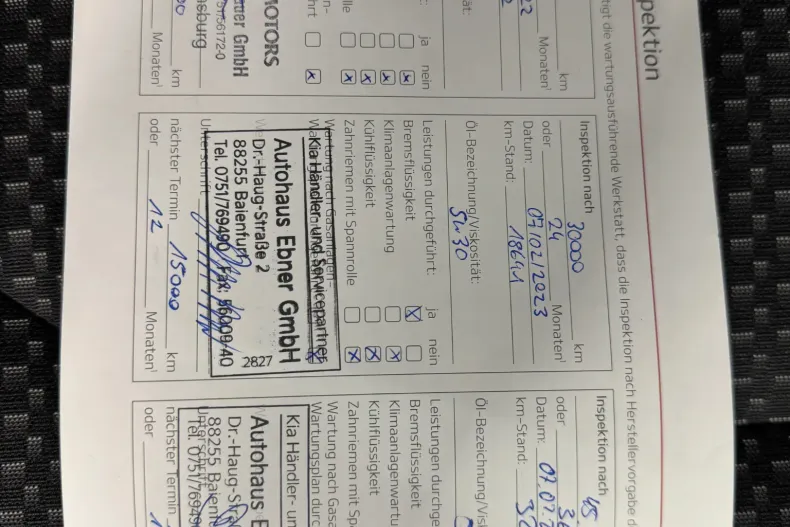 spektion
tigt die wartungsausführende Werkstatt, dass die Inspektion nach Herstellervorgabe d
km
Monaten¹
ja nein
MOTORS
auer GmbH
nsburg
km
Monaten¹
Inspektion nach 30000 km
oder 24 Monaten¹
Datum: 07/02/2023
km-Stand: 18641
Öl-Bezeichnung/Viskosität:
5W30
Leistungen durchgeführt: ja nein
Bremsflüssigkeit
Klimaanlagenwartung
Kühlflüssigkeit
Zahnriemen mit Spannrolle
Wartung nach Gasanlagen-
Kia Händler und Servicepartner
Autohaus Ebner GmbH
2827
Dr.-Haug-Straße 2
88255 Baienfurt
Tel. 0751/769490 Fax: 56009/40
Unterschrift
nächster Termin 15000 km
oder 12 Monaten¹
Inspektion nach 45
oder
Datum: 07.02.2
km-Stand:
Öl-Bezeichnung/Visk
Leistungen durchge
Bremsflüssigkeit
Klimaanlagenwartu
Kühlflüssigkeit
Zahnriemen mit Sp
Wartung nach Gasa
Wartungsplan durc
Kia Händler un
Autohaus E
Dr.-Haug-Str
88255 Baienf
Tel. 0751/76949
nächster Termin
oder